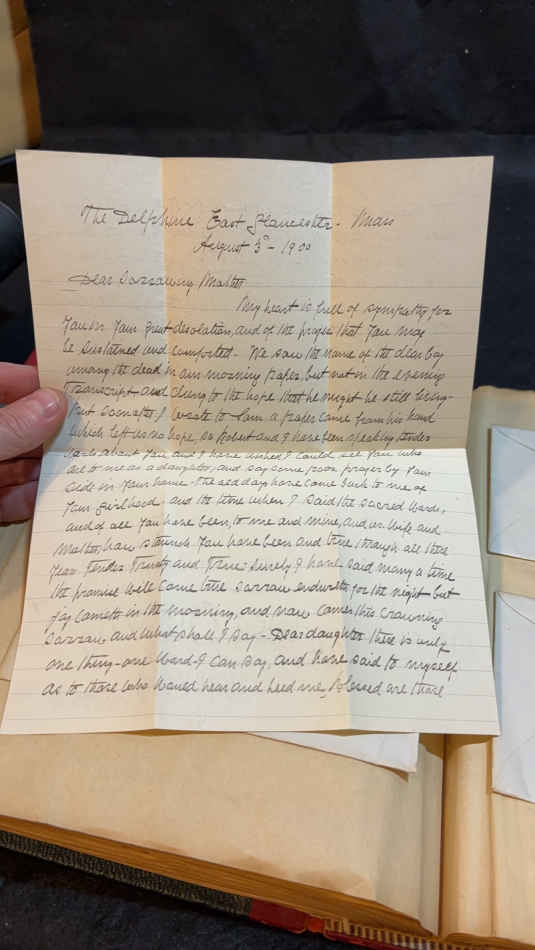 The Delphine East Gloucester - Mass
August 3d - 1900
Dear Sorrowing Mother
My heart is full of sympathy for
You in Your great desolation, and of the prayer that You may
be sustained and comforted - We saw the name of the dear boy
among the dead in our morning paper, but not in the evening
Transcript and clung to the hope that he might be still living -
But soon after I wrote to Sam a paper came from his hand
which left us no hope, so Robert and I have been speaking tender
words about You and I have wished I could see You who
are to me as a daughter, and say some poor prayer by Your
side in Your home - The old days have come back to me of
Your girlhood and the time when I said the sacred words,
and of all You have been, to me and mine, and as Wife and
Mother, how staunch You have been and true through all these
Years. Tender Trusty and True surely I have said many a time
the promise will come true sorrow endureth for the night but
joy cometh in the morning, and now comes this Crowning
Sorrow and What shall I Say - Dear daughter there is only
one thing - one Word I can say, and have said to myself
as to those who Would hear and heed me, Blessed are those